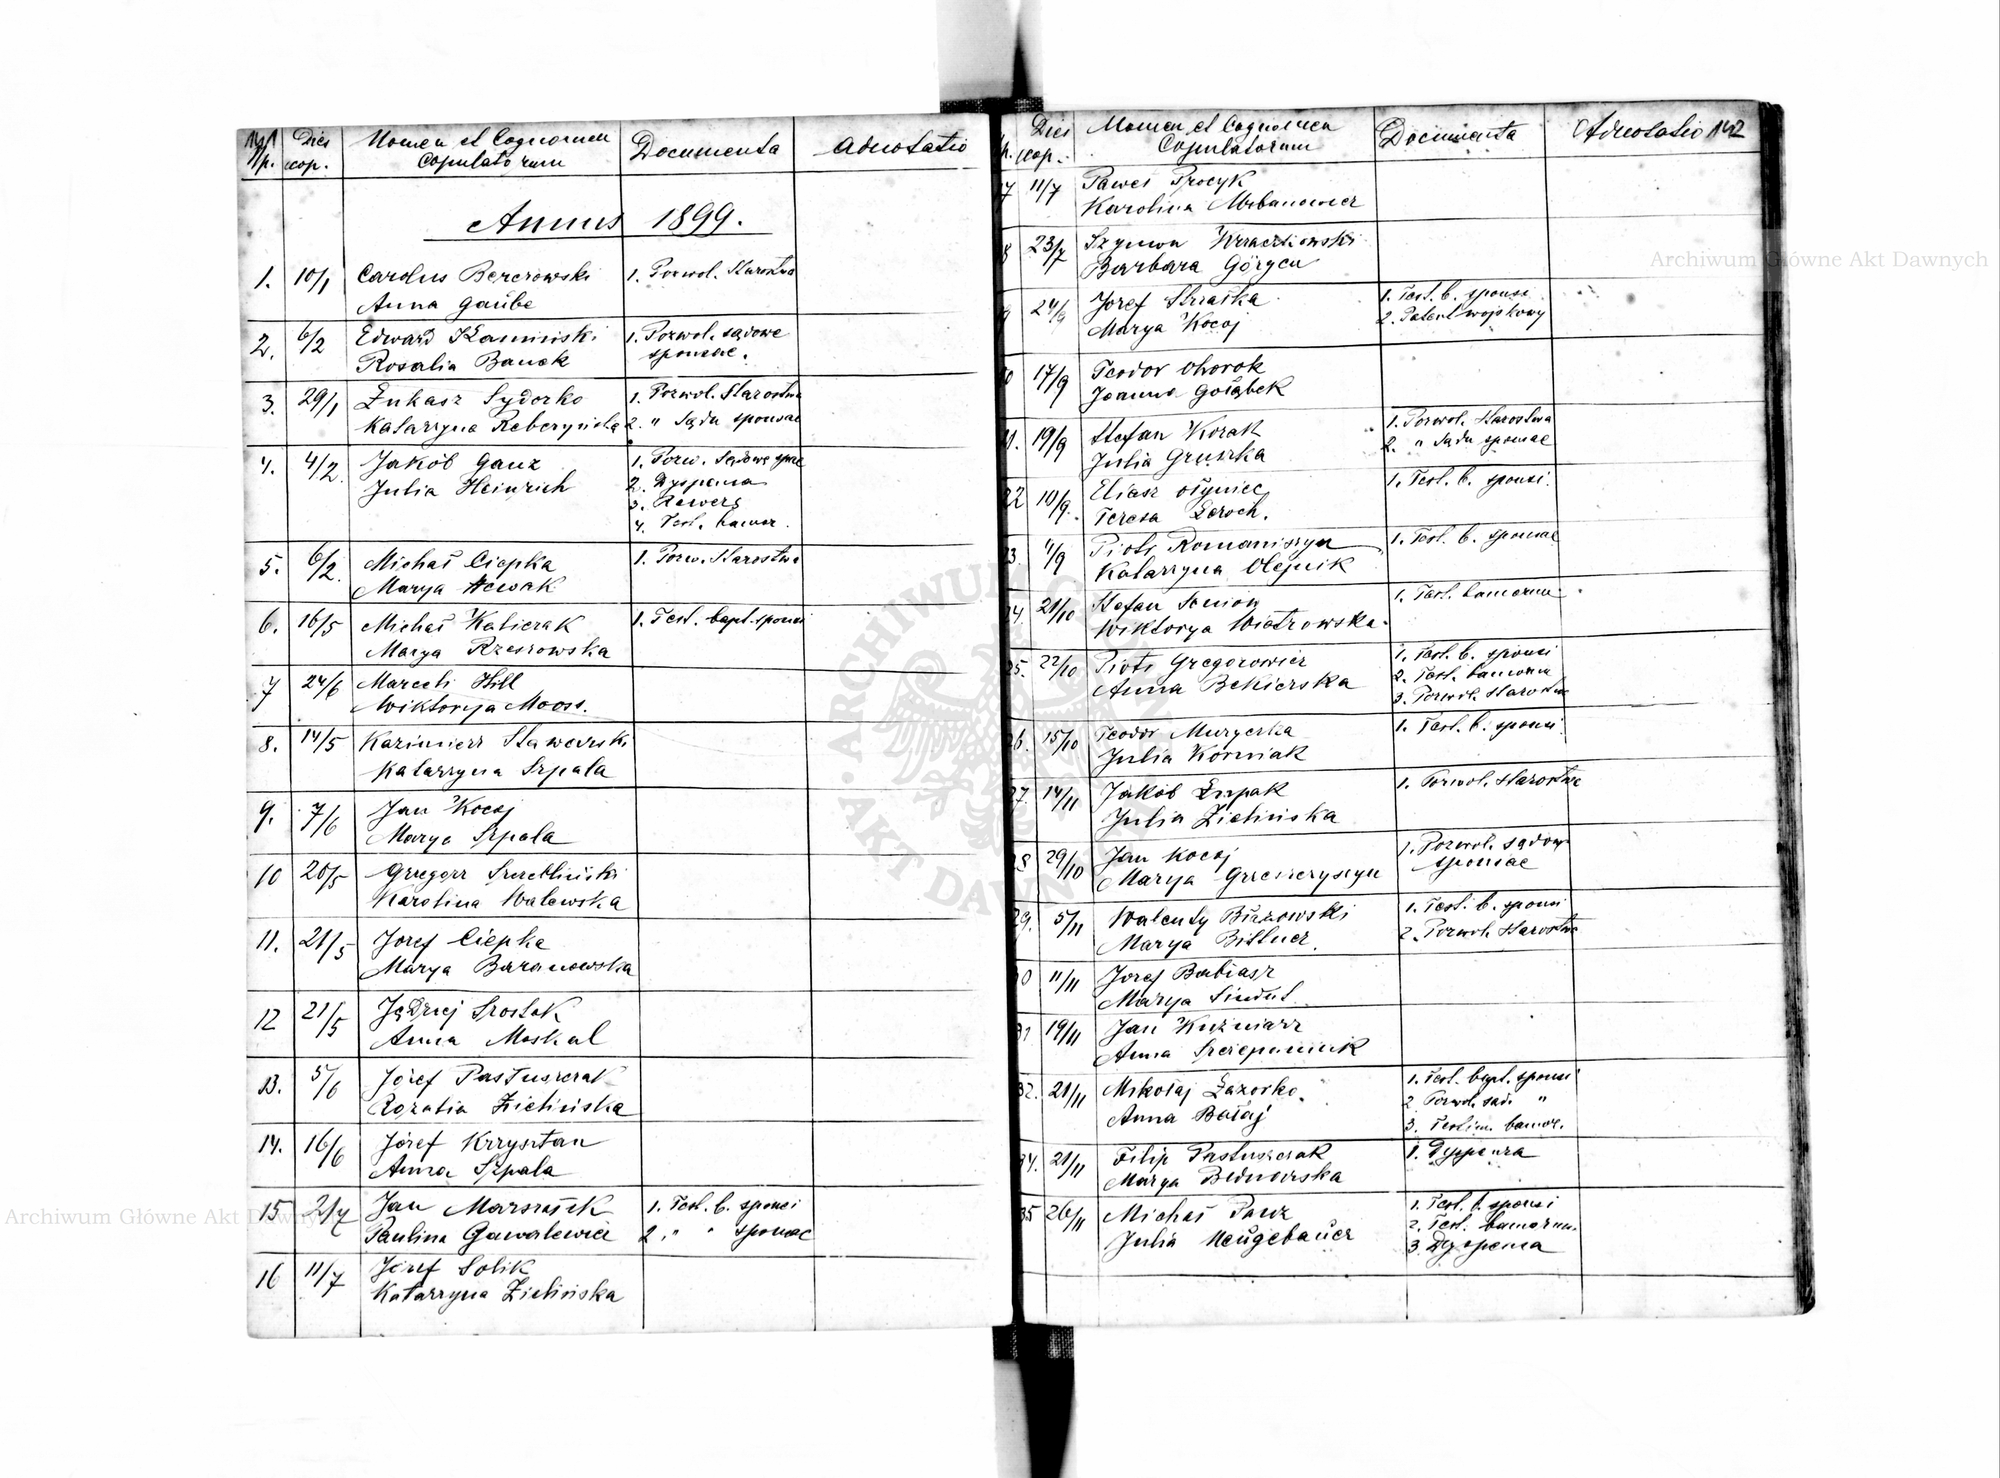 141
L.p. Dies cop. Nomen et Cognomen Copulatorum Documenta Adnotatio
Annus 1899.
1. 10/1 Carolus Bererowski 1. Pozwol. Starostwa
Anna Gaube
2. 6/2 Edward Kaminski 1. Pozwol. sądowe
Rosalia Banek sponsae.
3. 29/1 Łukasz Sydorko 1. Pozwol. Starostwa
Katarzyna Reberyńska 2. " Sądu sponsae
4. 4/2 Jakób Ganz 1. Pozw. Sądowe spons
Julia Heinrich 2. Dyspensa
3. Rewers
4. Test. bannor.
5. 6/2. Michał Ciepka 1. Pozw. Starostwa
Marya Nowak
6. 16/5 Michał Kaliczak 1. Test. bapt. sponsi
Marya Rzeszowska
7 24/6 Marceli Hill
Wiktorya Mooss.
8. 14/5 Kazimierz Stawarski
Katarzyna Szpala
9. 7/6 Jan Kocaj
Marya Szpala
10 20/5 Grzegorz Szrebliński
Karolina Walewska
11. 21/5 Józef Ciepka
Marya Baranowska
12 21/5 Jędrzej Szostak
Anna Moskal
13. 5/6 Józef Pastuszczak
Rozalia Zielińska
14. 16/6 Józef Krzysztan
Anna Szpala
15 2/7 Jan Marszałek 1. Test. b. sponsi
Paulina Gawalewicz 2. " " sponsae
16 11/7 Józef Solik
Katarzyna Zielińska
p. Dies cop. Nomen et Cognomen Copulatorum Documenta Adnotatio 142
7 11/7 Paweł Procyk
Karolina Urbanowicz
8 23/7 Szymon Kraczkowski
Barbara Górycu
9 24/9 Józef Straszka 1. Test. b. sponsi
Marya Kocaj 2. Patent wojskowy
0 17/9 Teodor Chorok
Joanna Gołąbek
21. 19/9 Stefan Kozak 1. Pozwol. Starostwa
Julia Gruszka 2. " Sądu sponsae
22 10/9. Eliasz Ołyniec 1. Test. b. sponsi.
Teresa Żeroch.
23. 4/9 Piotr Romaniszyn 1. Test. b. sponsae
Katarzyna Olejnik
24. 21/10 Stefan Seniow 1. Test. bannorum
Wiktorya Wiotrowska.
25. 22/10 Piotr Gregorowicz 1. Test. b. sponsi
Anna Bekierska 2. Test. bannorum
3. Pozwol. Starostwa
26. 15/10 Teodor Muryczka 1. Test. b. sponsi
Julia Korniak
27. 14/11 Jakób Łupak 1. Pozwol. Starostwa
Julia Zielińska
28 29/10 Jan Kocaj 1. Pozwol. sądowe
Marya Grzeszczyszyn sponsae
29. 5/11 Walenty Burzowski 1. Test. b. sponsi
Marya Bittner. 2. Pozwol. Starostwa
30 11/11 Józef Babiasz
Marya Sindut
31 19/11 Jan Kuźniarz
Anna Szczepaniuk
32. 21/11 Mikołaj Łazorko. 1. Test. bapt. sponsi
Anna Bałaj 2 Pozwol. sądu "
3. Testim. bannor.
34. 21/11 Filip Pastuszczak 1. Dyspensa
Marya Bednarska
35 26/11 Michał Panz 1. Test. b. sponsi
Julia Neugebauer 2. Test. bannorum.
3. Dyspensa
Archiwum Główne Akt Dawnych
Archiwum Główne Akt Dawnych
ARCHIWUM · AKT DAWN